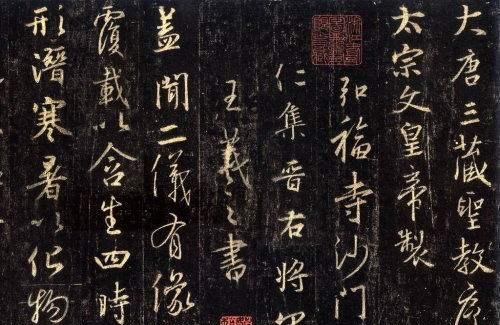 大唐三藏聖教序
太宗文皇帝製
弘福寺沙門
仁集晉右將軍
王羲之書
蓋聞二儀有像
覆載以含生四時
形潛寒暑以化物